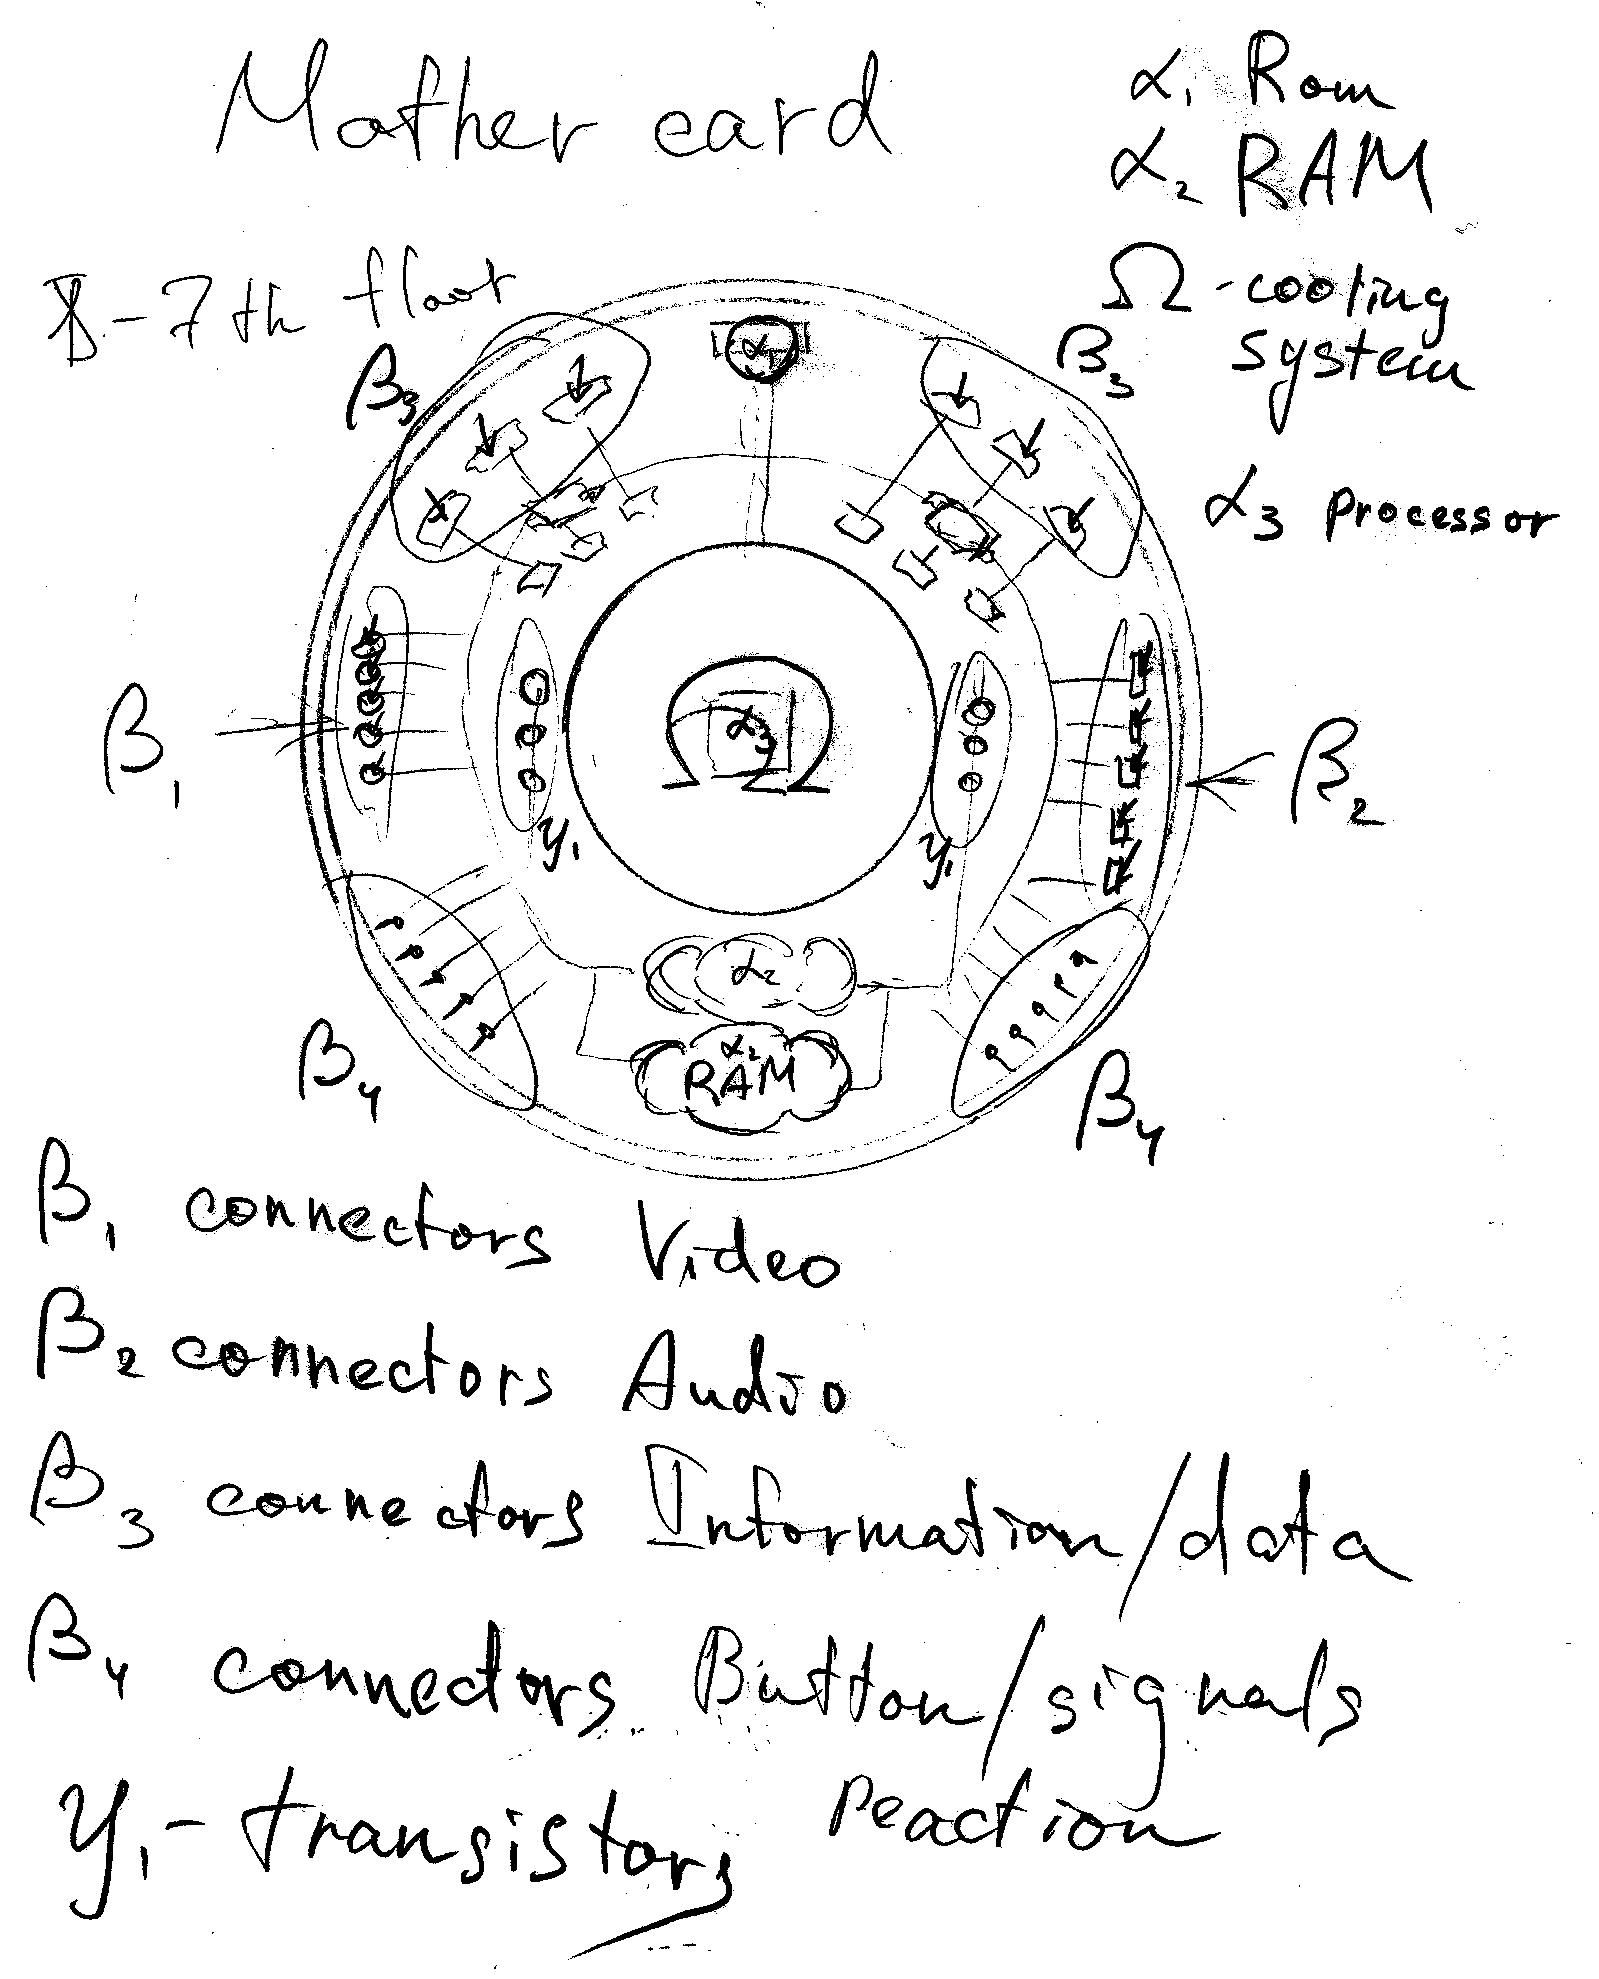 Mother card
α1 Rom
α2 RAM
Ω - cooling
system
α3 Processor
8 - 7th floor
β3
β3
α1
β1
β2
α3
y1
y1
α2
α2
RAM
β4
β4
β1 connectors Video
β2 connectors Audio
β3 connectors Information/data
β4 connectors Button/signals
reaction
y1 - transistors